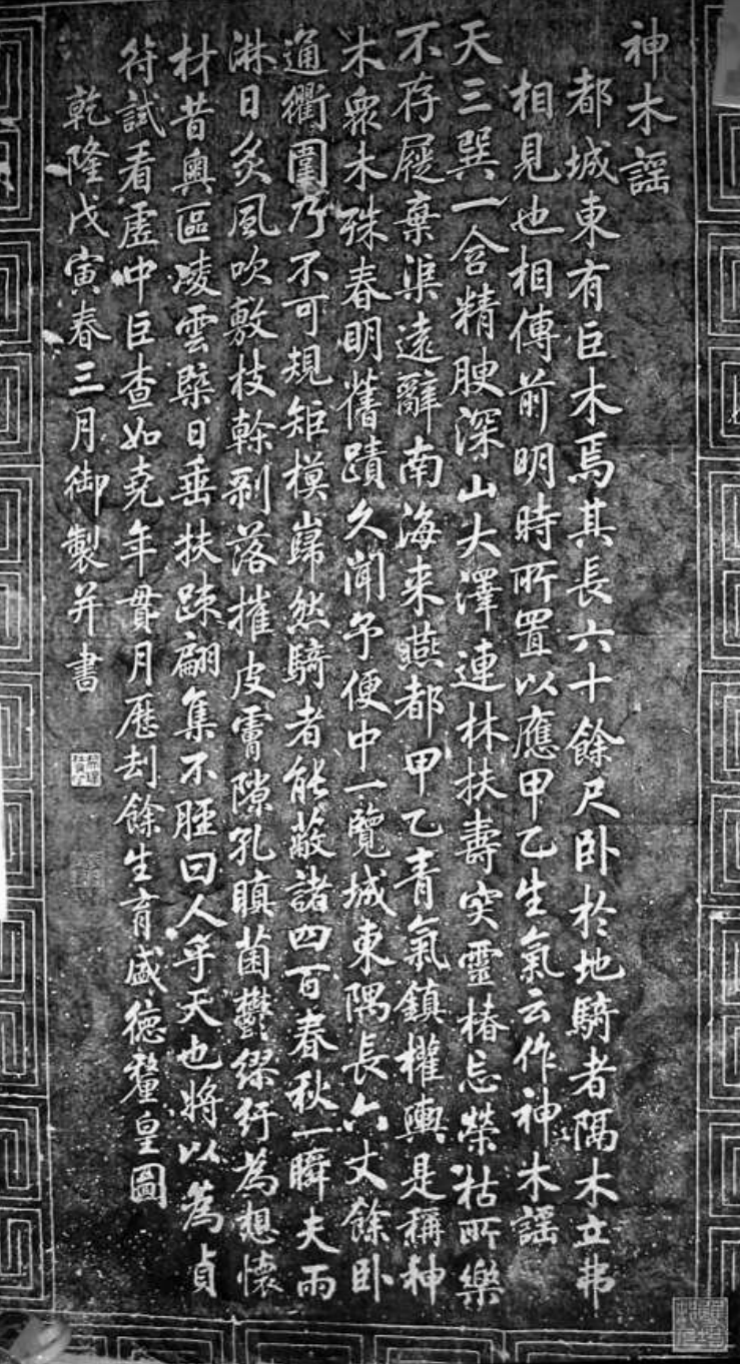 神木謠
都城東有巨木焉其長六十餘尺卧於地騎者隔木立弗
相見也相傳前明時所置以應甲乙生氣云作神木謠
天三巽一含精腴深山大澤連林扶壽突靈椿忘榮枯所樂
不存屣棄渠遠辭南海来燕都甲乙青氣鎮權輿是稱神
木衆木殊春明舊蹟久聞予便中一覽城東隅長六丈餘卧
通衢圍乃不可規矩模巋然騎者能蔽諸四百春秋一瞬夫雨
淋日炙風吹敷枝榦剥落摧皮膚隙孔瞋菌鬱繆紆為想懷
材昔奥區凌雲槩日垂扶疎翩集不脛曰人乎天也將以為貞
符試看虛中巨查如堯年貫月歷刦餘生育盛德釐皇圖
乾隆戊寅春三月御製并書